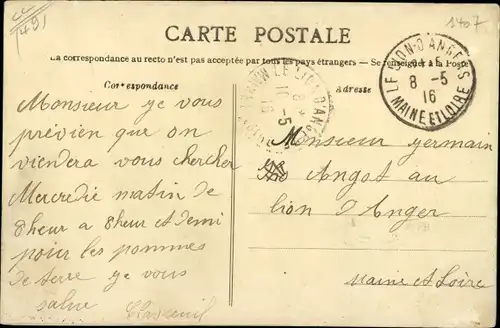 1491
1407
CARTE POSTALE
La correspondance au recto n'est pas acceptée par tous les pays étrangers. — Se renseigner à la Poste
Correspondance
adresse
LE LION-D'ANGERS
8 - 5
16
MAINE ET LOIRE
LE LION D'ANG
8
11 - 5
Monsieur ye vous
prévien que on
viendera vous chercher
Mercredie matin de
8heur a 8heur et demi
pour les pommes
de terre ye vous
salue
Monsieur germain
Angot au
lion d'Anger
Maine et Loire